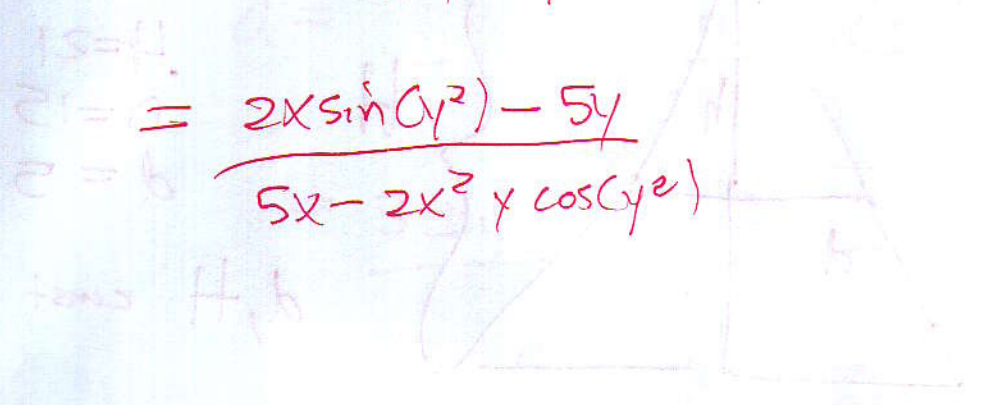 = 2x sin(y²) - 5y
5x - 2x² y cos(y²)